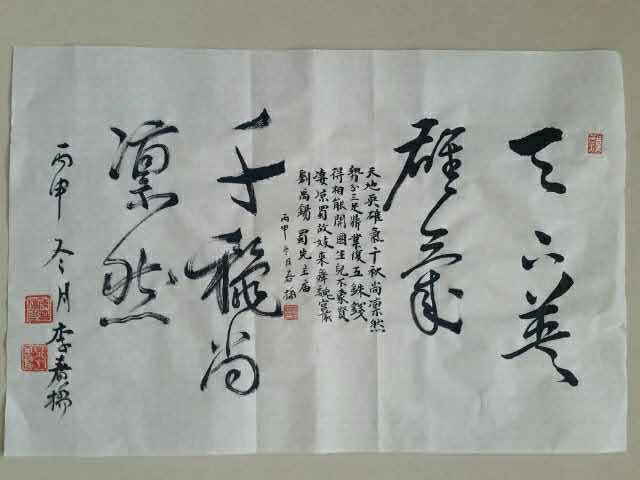 天下英
雄氣
天地英雄氣千秋尚凛然
勢分三足鼎業復五銖錢
得相能開國生兒不象賢
凄凉蜀故妓來舞魏宫前
劉禹錫 蜀先主庙
丙申冬月春
千龝尚
凛然
丙申冬月李春